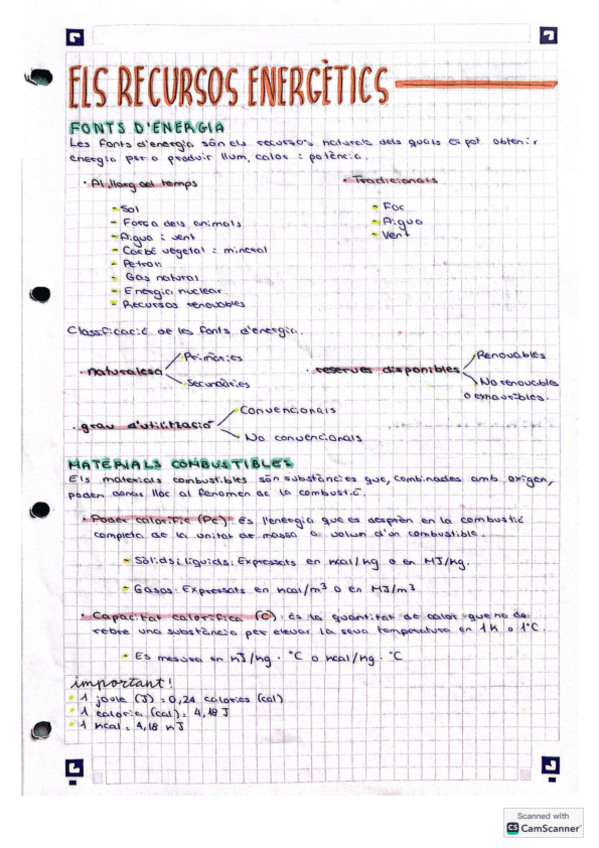 ELS RECURSOS ENERGÈTICS
FONTS D'ENERGIA
Les fonts d'energia són els recursos naturals dels quals es pot obtenir
energia per a produir llum, calor i potència.
· Al llarg del temps
- Sol
- Força dels animals
- Aigua i vent
- Carbó vegetal i mineral
- Petroli
- Gas natural
- Energia nuclear
- Recursos renovables
· Tradicionals
- Foc
- Aigua
- Vent
Classificació de les fonts d'energia.
· naturalesa
Primàries
Secundàries
· reserves disponibles
Renovables
No renovables
o exhauribles.
· grau d'utilització
Convencionals
No convencionals
MATERIALS COMBUSTIBLES
Els materials combustibles són substàncies que, combinades amb oxigen,
poden donar lloc al fenomen de la combustió.
· Poder calorífic (Pc): és l'energia que es desprèn en la combustió
completa de la unitat de massa o volum d'un combustible.
- Sòlids i líquids: Expressats en kcal/kg o en MJ/kg.
- Gasos: Expressats en kcal/m³ o en MJ/m³
· Capacitat calorífica (C): és la quantitat de calor que ha de
rebre una substància per elevar la seua temperatura en 1 K o 1°C.
- Es mesura en kJ/kg · °C o kcal/kg · °C
important!
· 1 joule (J) = 0,24 calories (cal)
· 1 caloria (cal) = 4,18 J
· 1 kcal = 4,18 kJ
Scanned with
CS CamScanner